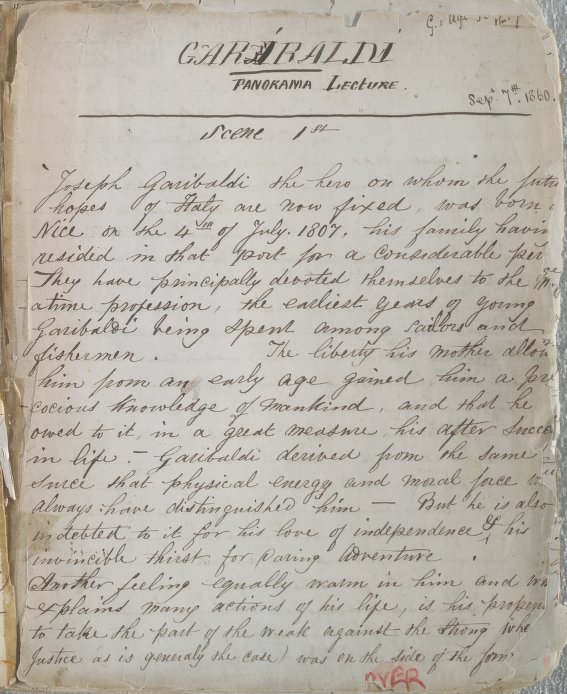 GARIBALDI
PANORAMA LECTURE.
Sepr 7th. 1860.
Scene 1st
Joseph Garibaldi the hero on whom the futu
hopes of Italy are now fixed, was born
Nice on the 4th of July. 1807, his family havin
resided in that port for a considerable per
They have principally devoted themselves to the
atime profession, the earliest years of young
Garibaldi being spent among sailors and
fishermen. The liberty his mother allow
him from an early age gained him a pre
cocious knowledge of mankind, and that he
owed to it, in a great measure, his after succe
in life. — Garibaldi derived from the same
surce that physical energy and moral force w
always have distinguished him — But he is also
indebted to it for his love of independence & his
invincible thirst for Daring Adventure.
Another feeling equally warm in him and w
explains many actions of his life, is his propen
to take the part of the weak against the Strong (whe
Justice as is generaly the case) was on the side of the form
OVER